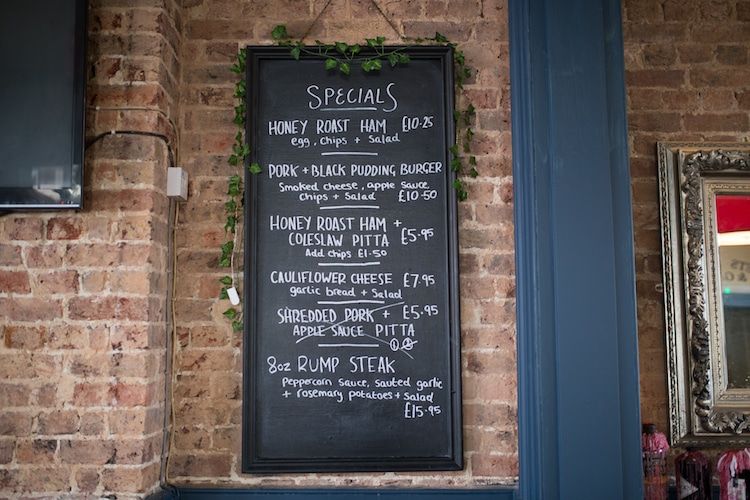 SPECIALS
HONEY ROAST HAM £10.25
egg, chips + Salad
PORK + BLACK PUDDING BURGER
Smoked cheese, apple sauce,
Chips + Salad £10.50
HONEY ROAST HAM +
COLESLAW PITTA £5.95
Add chips £1.50
CAULIFLOWER CHEESE £7.95
garlic bread + Salad
SHREDDED PORK + £5.95
APPLE SAUCE PITTA
8oz RUMP STEAK
Peppercorn sauce, sauted garlic
+ rosemary potatoes + Salad
£15.95